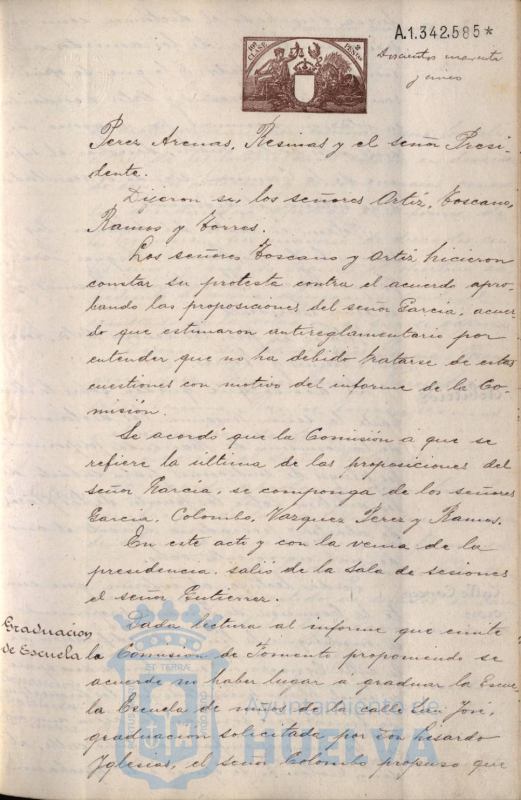 A.1.342.585*
10ª CLASE
2 PESETAS
Doscientos cuarenta
y cinco
Perez Arenas, Resinas y el señor Presi-
dente.
Dijeron si, los señores Ortiz, Toscano,
Ramos y Torres.
Los señores Toscano y Ortiz hicieron
constar su protesta contra el acuerdo apro-
bando las proposiciones del señor Garcia, acuer-
do que estimaron antireglamentario por
entender que no ha debido tratarse de estas
cuestiones con motivo del informe de la Co-
misión.
Se acordó que la Comision a que se
refiere la última de las proposiciones del
señor Garcia, se componga de los señores
Garcia, Colombo, Vazquez Perez y Ramos.
En este acto y con la venia de la
presidencia, salió de la Sala de sesiones
el señor Gutierrez.
Graduacion
de Escuela
Dada lectura al informe que emite
la Comision de Fomento proponiendo se
acuerde no haber lugar á graduar la Escue-
la Escuela de niños de la calle San José,
graduacion solicitada por Don Lisardo
Yglesias, el señor Colombo propuso que
Ayuntamiento de
HUELVA